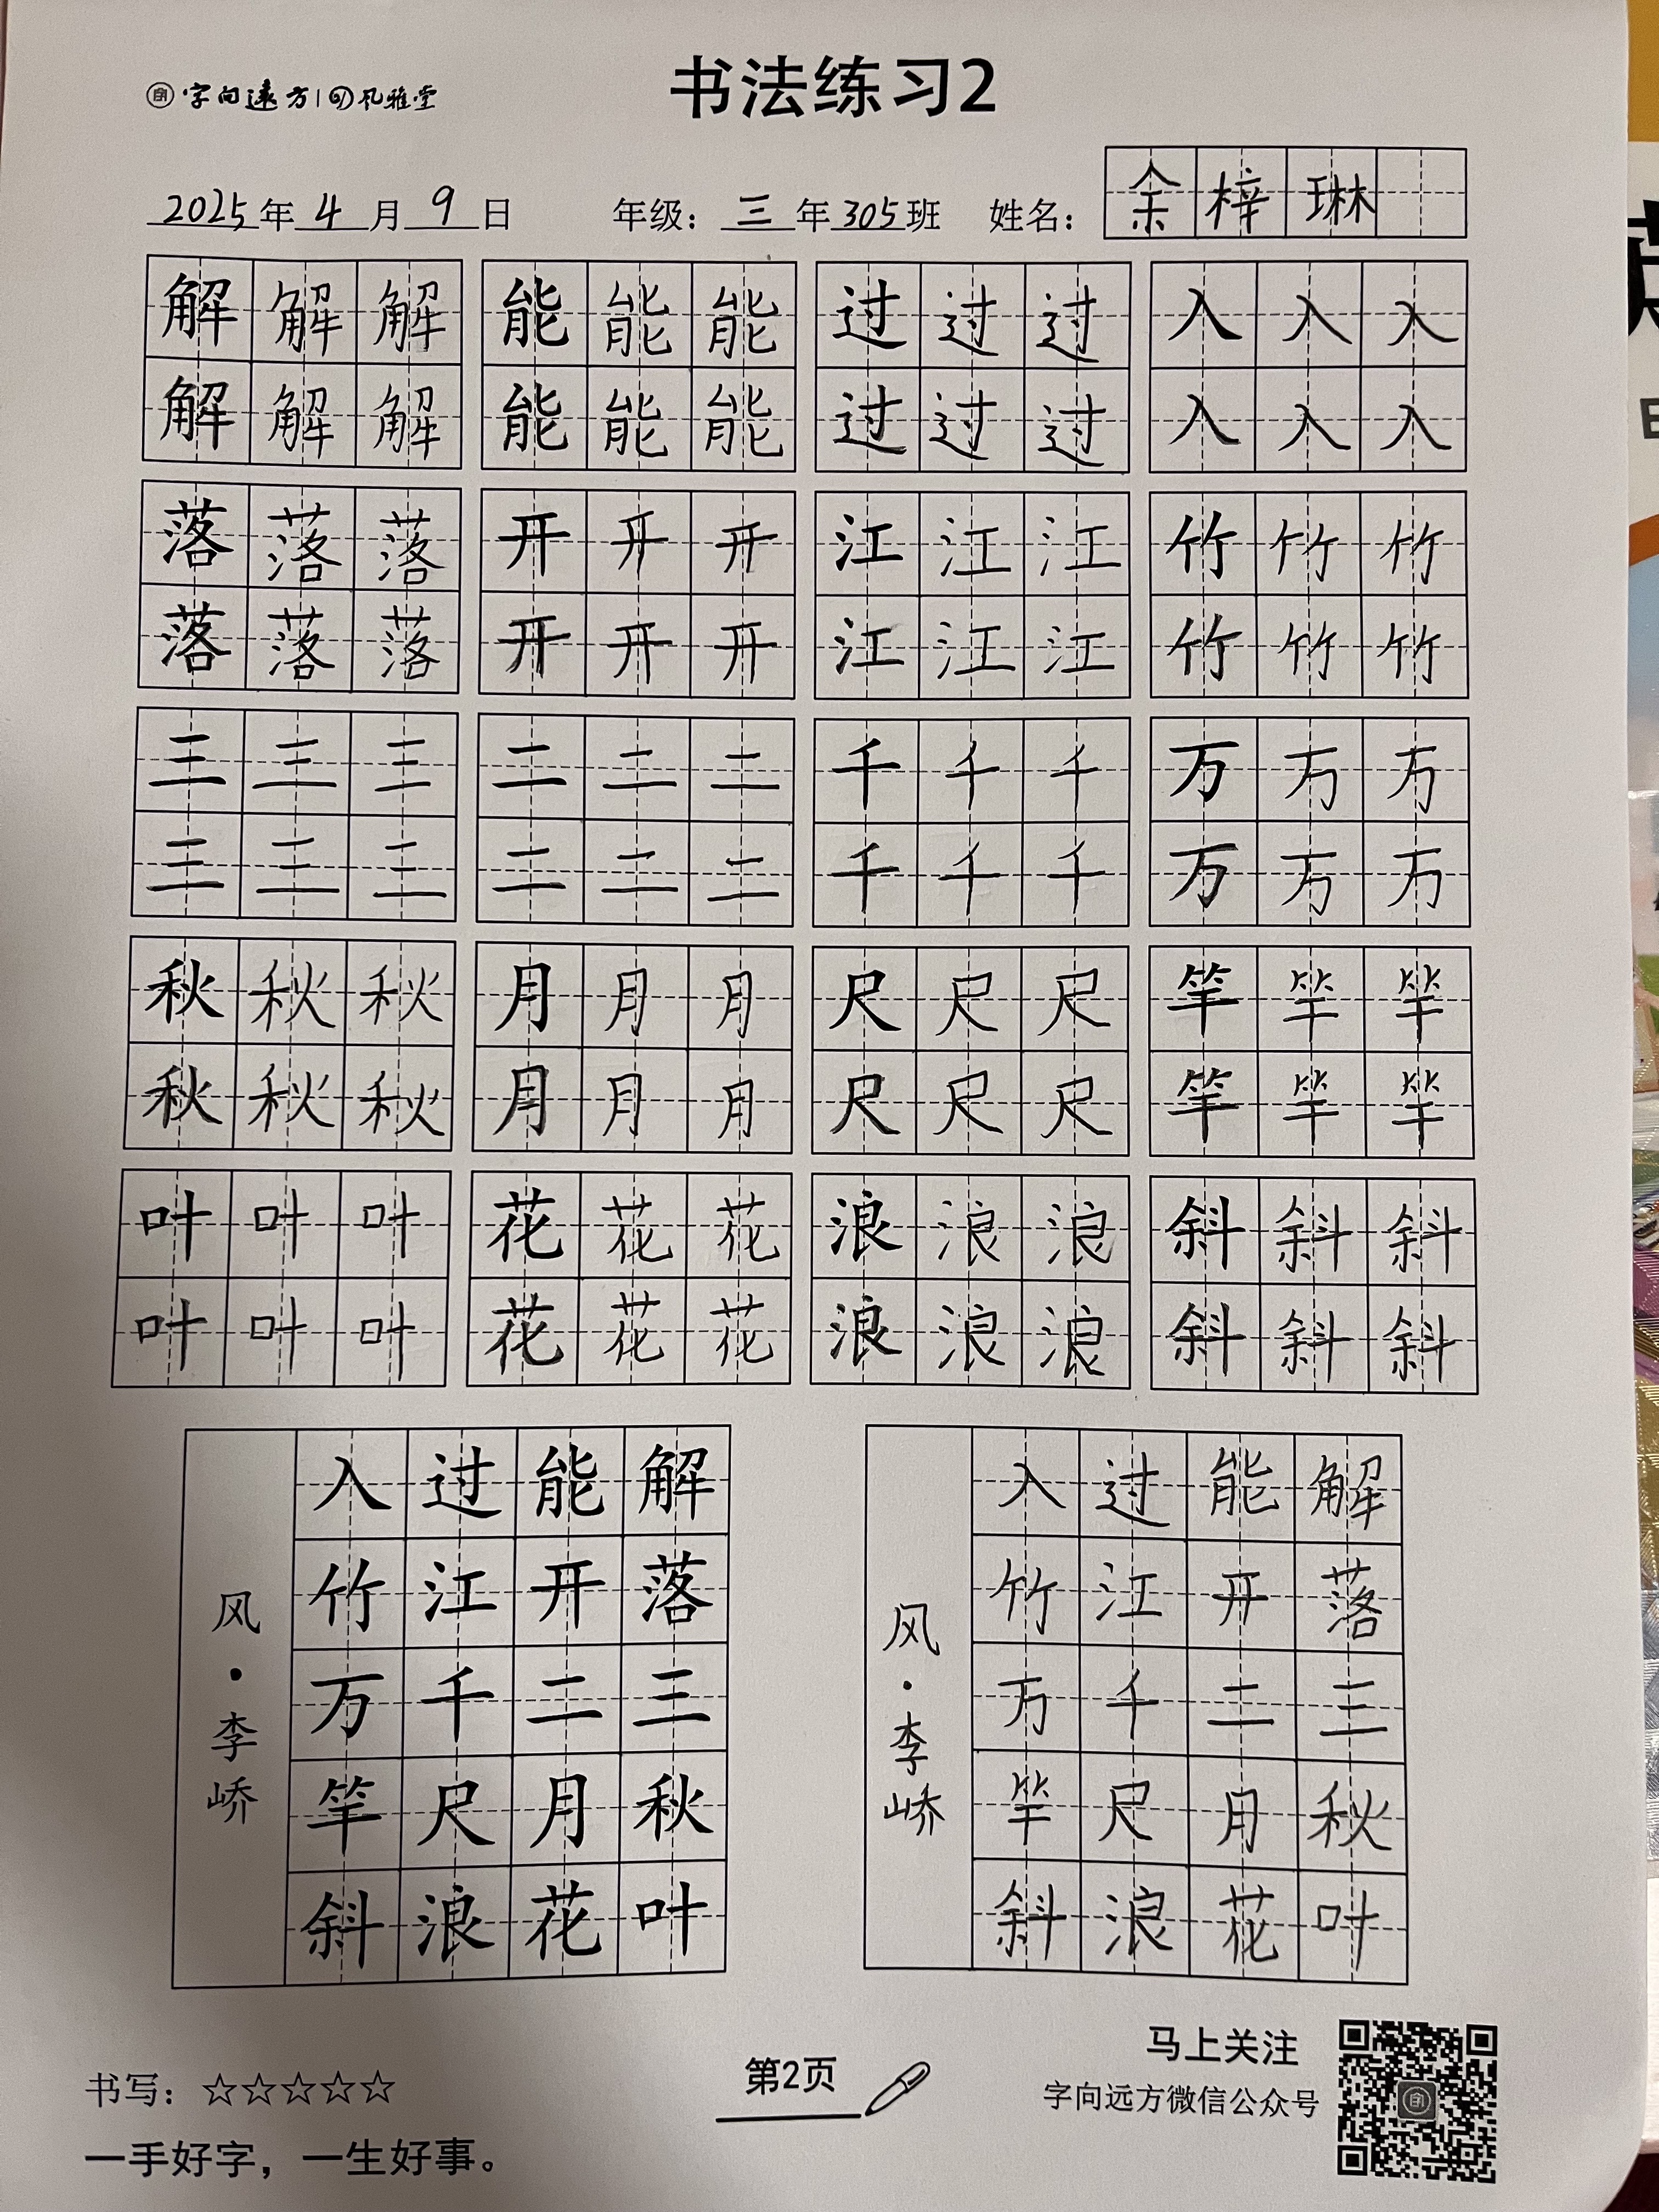 字向远方 凡雅堂
书法练习2
2025年4月9日 年级：三年305班 姓名：余梓琳
解解解 能能能 过过过 入入入
解解解 能能能 过过过 入入入
落落落 开开开 江江江 竹竹竹
落落落 开开开 江江江 竹竹竹
三三三 二二二 千千千 万万万
三三三 二二二 千千千 万万万
秋秋秋 月月月 尺尺尺 竿竿竿
秋秋秋 月月月 尺尺尺 竿竿竿
叶叶叶 花花花 浪浪浪 斜斜斜
叶叶叶 花花花 浪浪浪 斜斜斜
解落三秋叶
能开二月花
过江千尺浪
入竹万竿斜
风·李峤
解落三秋叶
能开二月花
过江千尺浪
入竹万竿斜
风·李峤
书写：☆☆☆☆☆
一手好字，一生好事。
第2页
马上关注
字向远方微信公众号